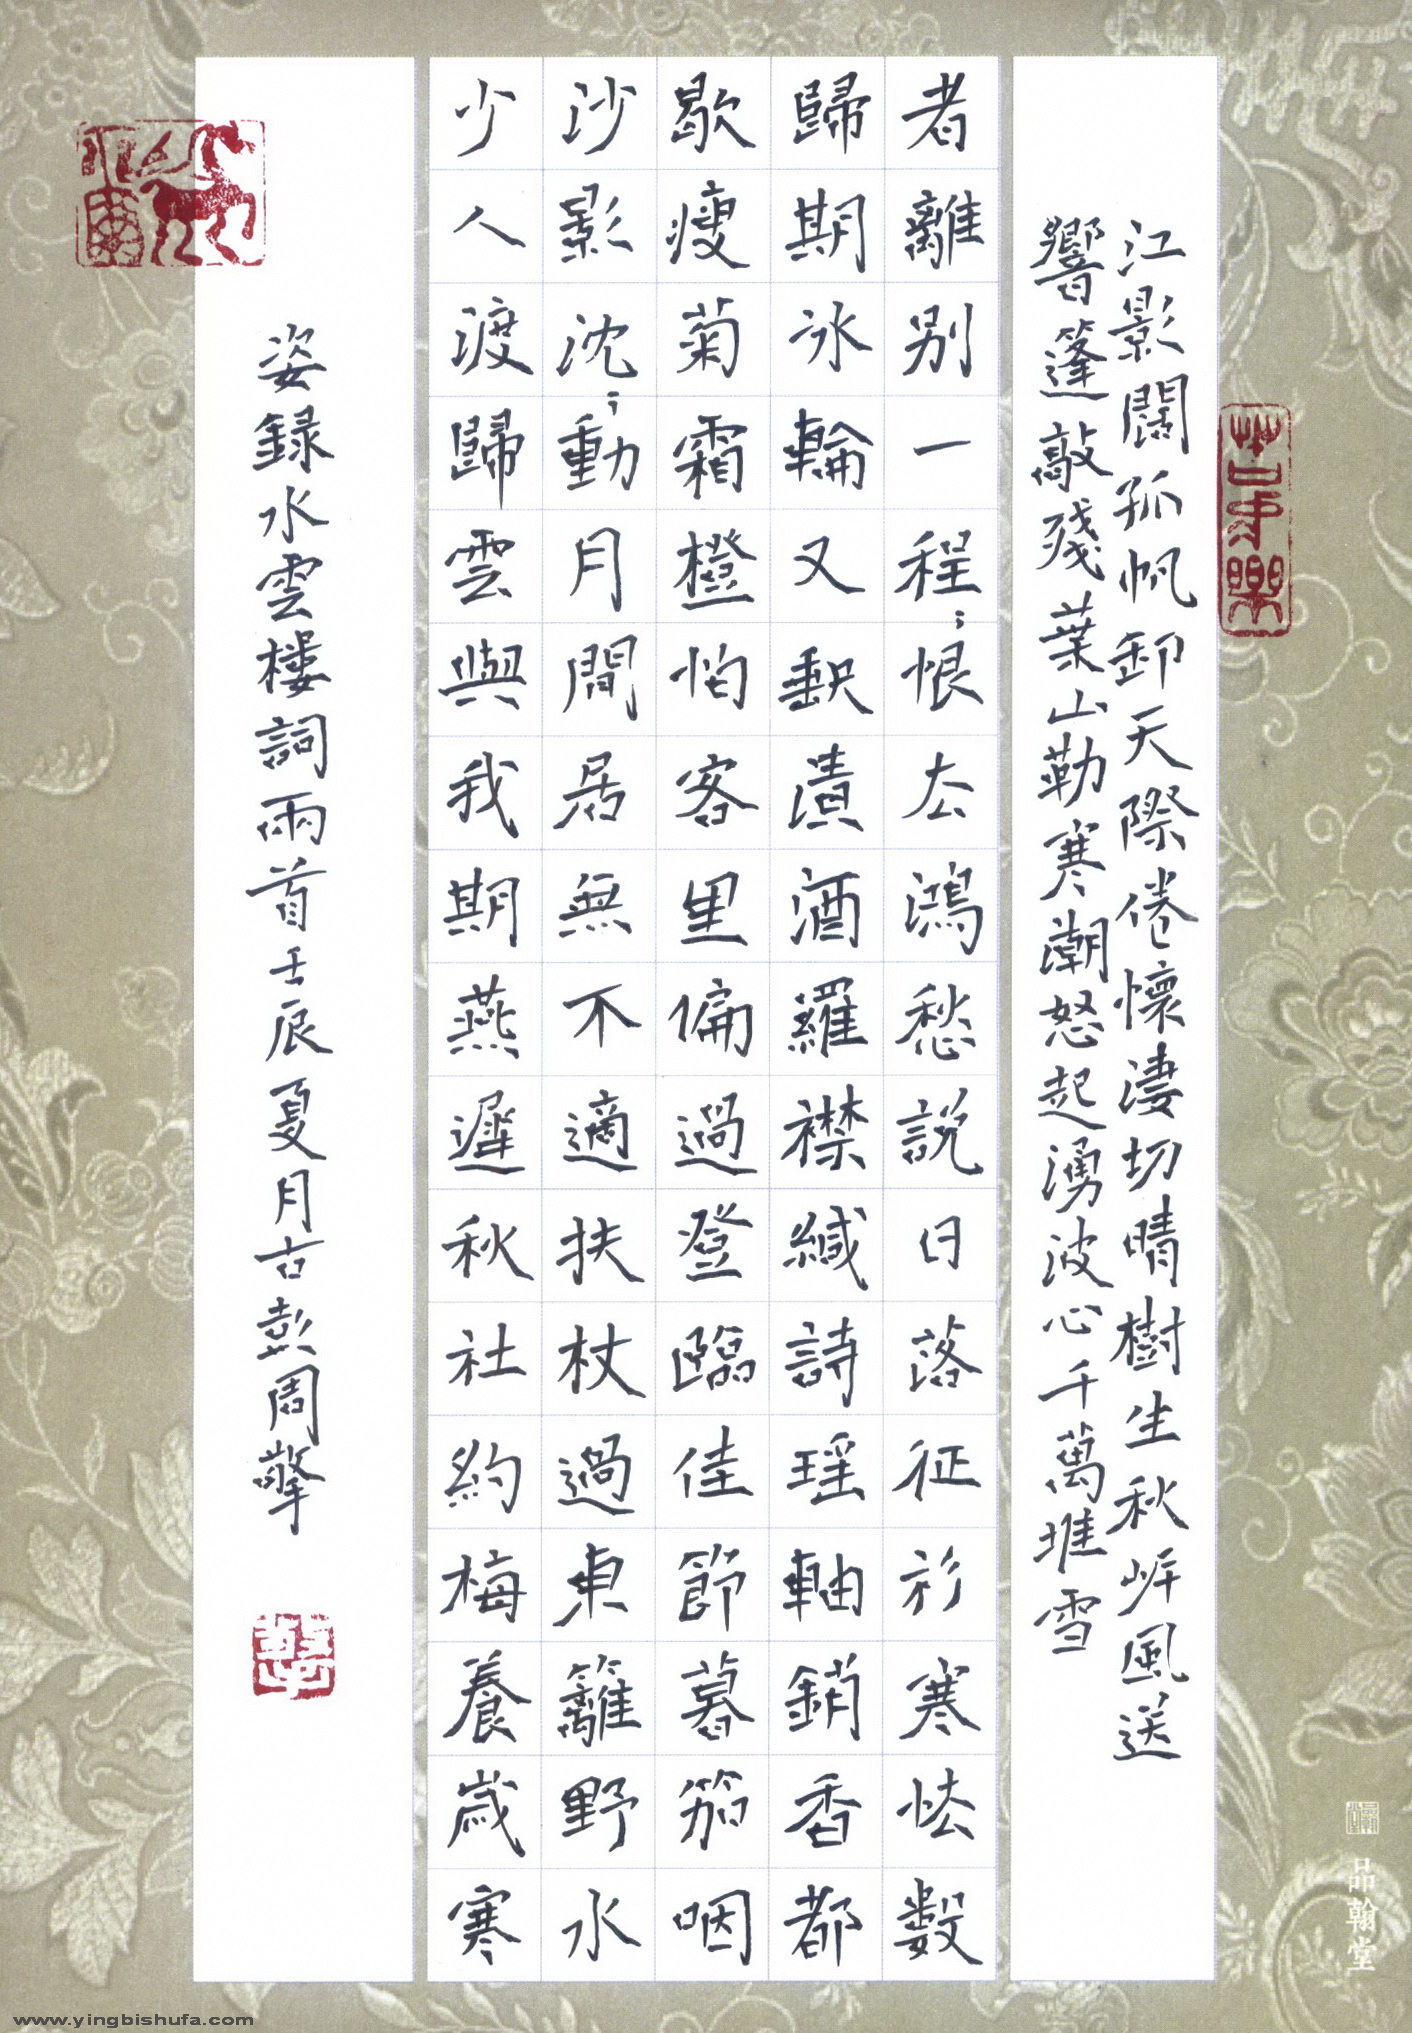 江影闊孤帆卸天際倦懷淒切晴樹生秋岸風送
響篷敲殘葉山勒寒潮怒起湧波心千萬堆雪
者離別一程〻恨去鴻愁說日落征衫寒怯數
歸期冰輪又缺漬酒羅襟緘詩瑤軸銷香都
歇瘦菊霜橙怕客里偏過登臨佳節暮笳咽
沙影沈〻動月間居無不適扶杖過東籬野水
少人渡歸雲與我期燕遲秋社約梅養歲寒
姿錄水雲樓詞兩首壬辰夏月古彭周擎
品翰堂
www.yingbishufa.com